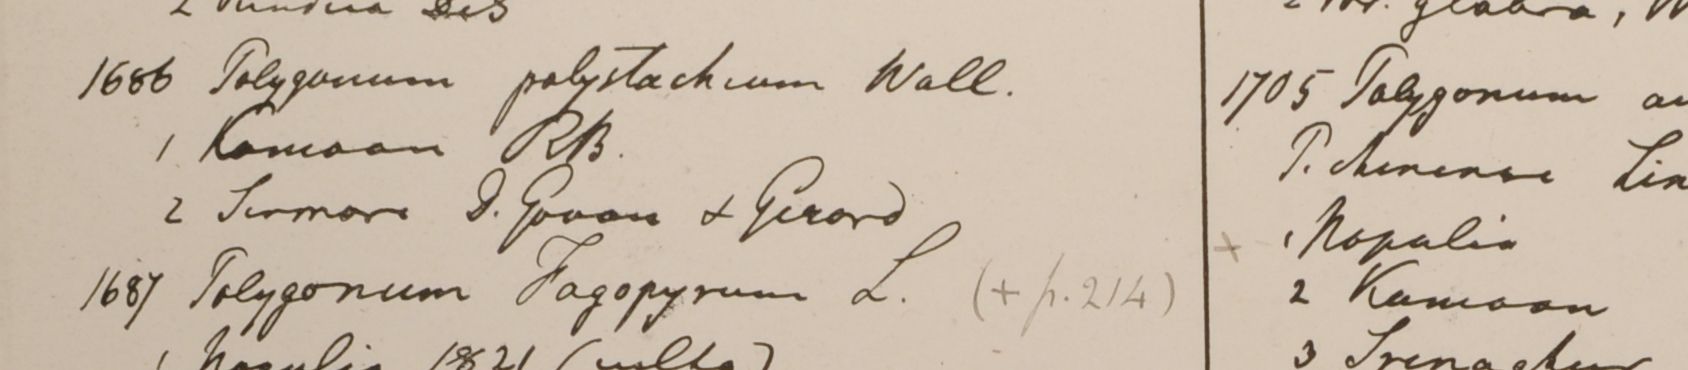 1686 Polygonum polystachium Wall.
1 Kamaon RB.
2 Sirmore D. Govan & Gerard
1687 Polygonum Fagopyrum L. (+ p. 214)
1 Napalia 1821 (culta)
2 var. glabra,
1705 Polygonum
P. chinense Lin
+ 1 Napalia
2 Kamaon
3 Srinaghur